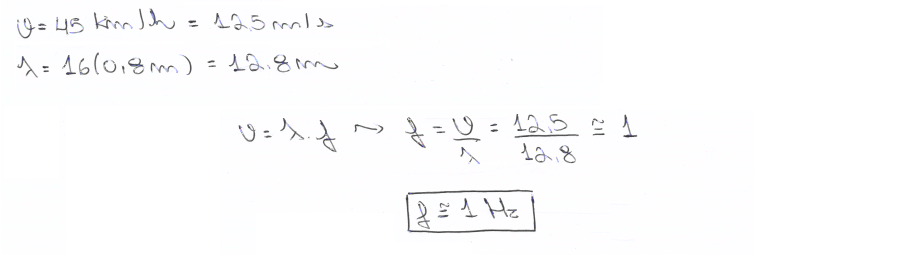 v = 45 km/h = 12.5 m/s
λ = 16(0,8m) = 12.8m
v = λ.f ~> f = v/λ = 12.5/12.8 ≅ 1
f ≅ 1 Hz